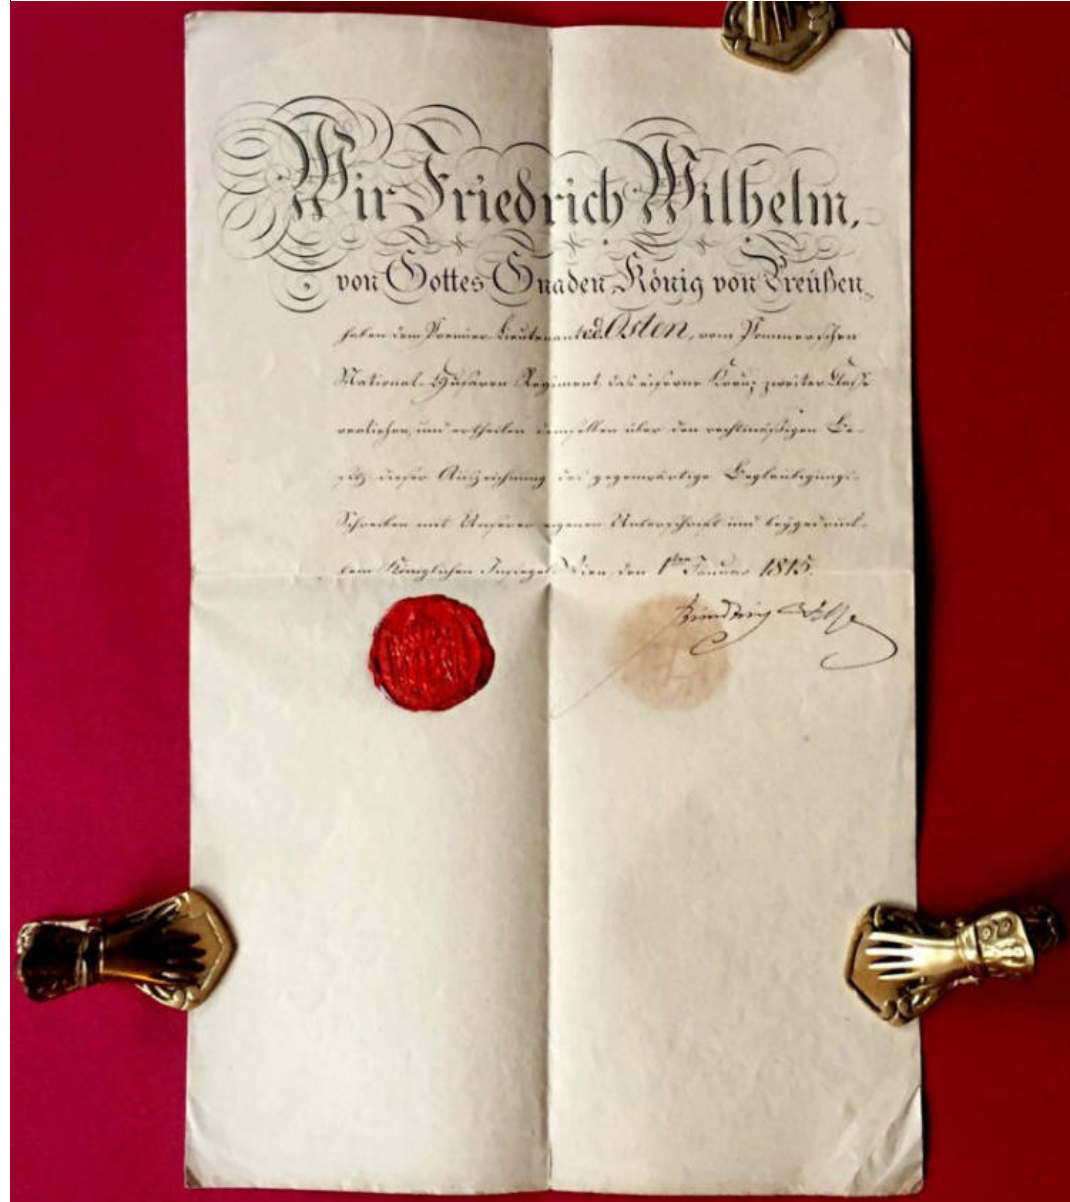 Wir Friedrich Wilhelm,
von Gottes Gnaden König von Preußen
haben dem Premier-Lieutenant v.d. Osten, vom Pommerschen
National-Husaren Regiment das eiserne Kreuz zweiter Klasse
verliehen, und ertheilen demselben über den rechtmäßigen Be-
sitz dieser Auszeichnung das gegenwärtige Beglaubigungs-
Schreiben mit Unserer eigenen Unterschrift und beygedruck-
tem Königlichen Insiegel. Wien, den 1ten Januar 1815.
Friedrich Wilhelm